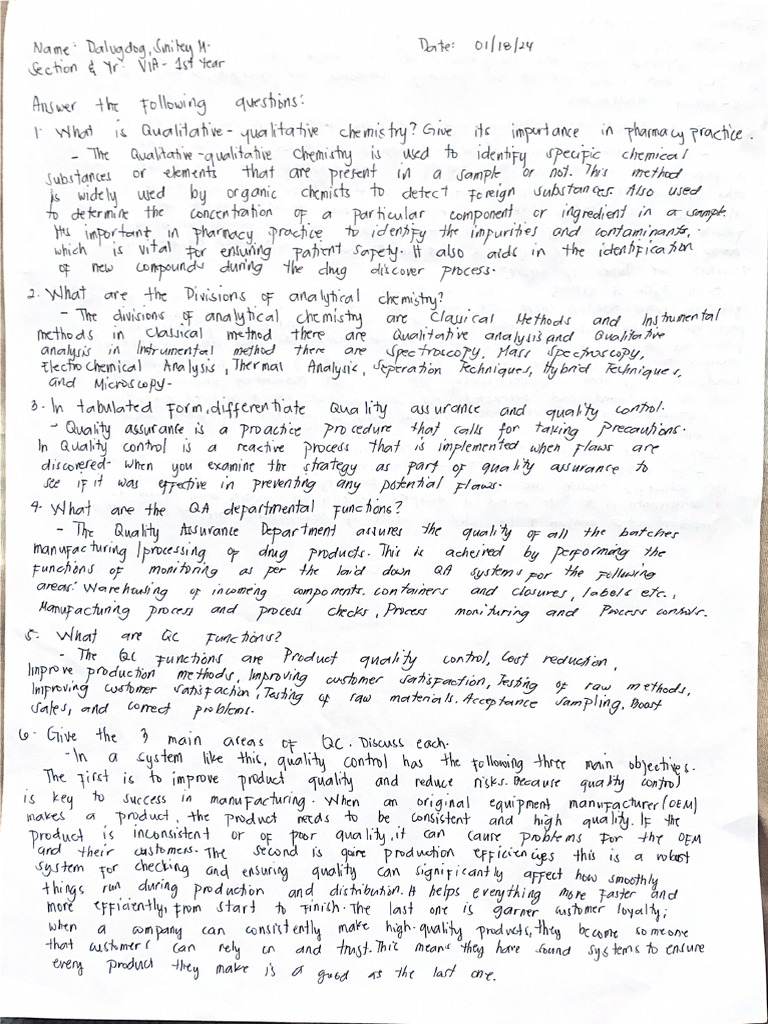 Name: Dalugdog, Smikey M.
Date: 01/18/24
Section & Yr: VIA - 1st Year
Answer the following questions:
1. What is Qualitative-qualitative chemistry? Give its importance in pharmacy practice.
- The Qualitative-qualitative Chemistry is used to identify specific chemical
substances or elements that are present in a sample or not. This method
is widely used by organic chemists to detect foreign substances. Also used
to determine the concentration of a particular component or ingredient in a sample.
Its important in pharmacy practice to identify the impurities and contaminants,
which is vital for ensuring patient safety. It also aids in the identification
of new compounds during the drug discover process.
2. What are the Divisions of analytical chemistry?
- The divisions of analytical chemistry are Classical Methods and Instrumental
methods in Classical method there are Qualitative analysis and Qualitative
analysis in Intrumental method there are Spectroscopy, Mass Spectroscopy,
Electrochemical Analysis, Thermal Analysis, Seperation Techniques, Hybrid Techniques,
and Microscopy-
3. In tabulated form, differentiate Quality assurance and quality control.
- Quality assurance is a proactice procedure that calls for taking precautions.
In Quality control is a reactive process that is implemented when flaws are
discovered- when you examine the strategy as part of quality assurance to
see if it was effective in preventing any potential flaws.
4. What are the QA departmental functions?
- The Quality Assurance Department assures the quality of all the batches
manufacturing /processing of drug products. This is acheived by performing the
functions of monitoring as per the laid down QA systems for the following
areas: Warehousing of incoming components. containers and closures, labels etc.,
Manufacturing process and process checks, Process monituring and Process controls.
5. What are QC Functions?
- The QC Functions are Product quality control, Cost reduction,
Improve production methods, Improving customer satisfaction, Testing of raw methods,
Improving customer satisfaction, Testing of raw materials. Acceptance Sampling, Boost
sales, and correct problems.
6. Give the 3 main areas of QC. Discuss each.
- In a system like this, quality control has the following three main objectives.
The first is to improve product quality and reduce risks. Because quality control
is key to success in manufacturing. When an original equipment manufacturer (OEM)
makes a product, the product needs to be consistent and high quality. If the
product is inconsistent or of poor quality, it can cause problems for the OEM
and their customers. The second is production efficiencies this is a robust
system for checking and ensuring quality can significantly affect how smoothly
things run during production and distribution. It helps everything more faster and
more efficiently, from start to finish. The last one is garner customer loyalty;
when a company can consistently make high-quality products, they become someone
that customers can rely on and trust. This means they have sound systems to ensure
every product they make is a good as the last one.